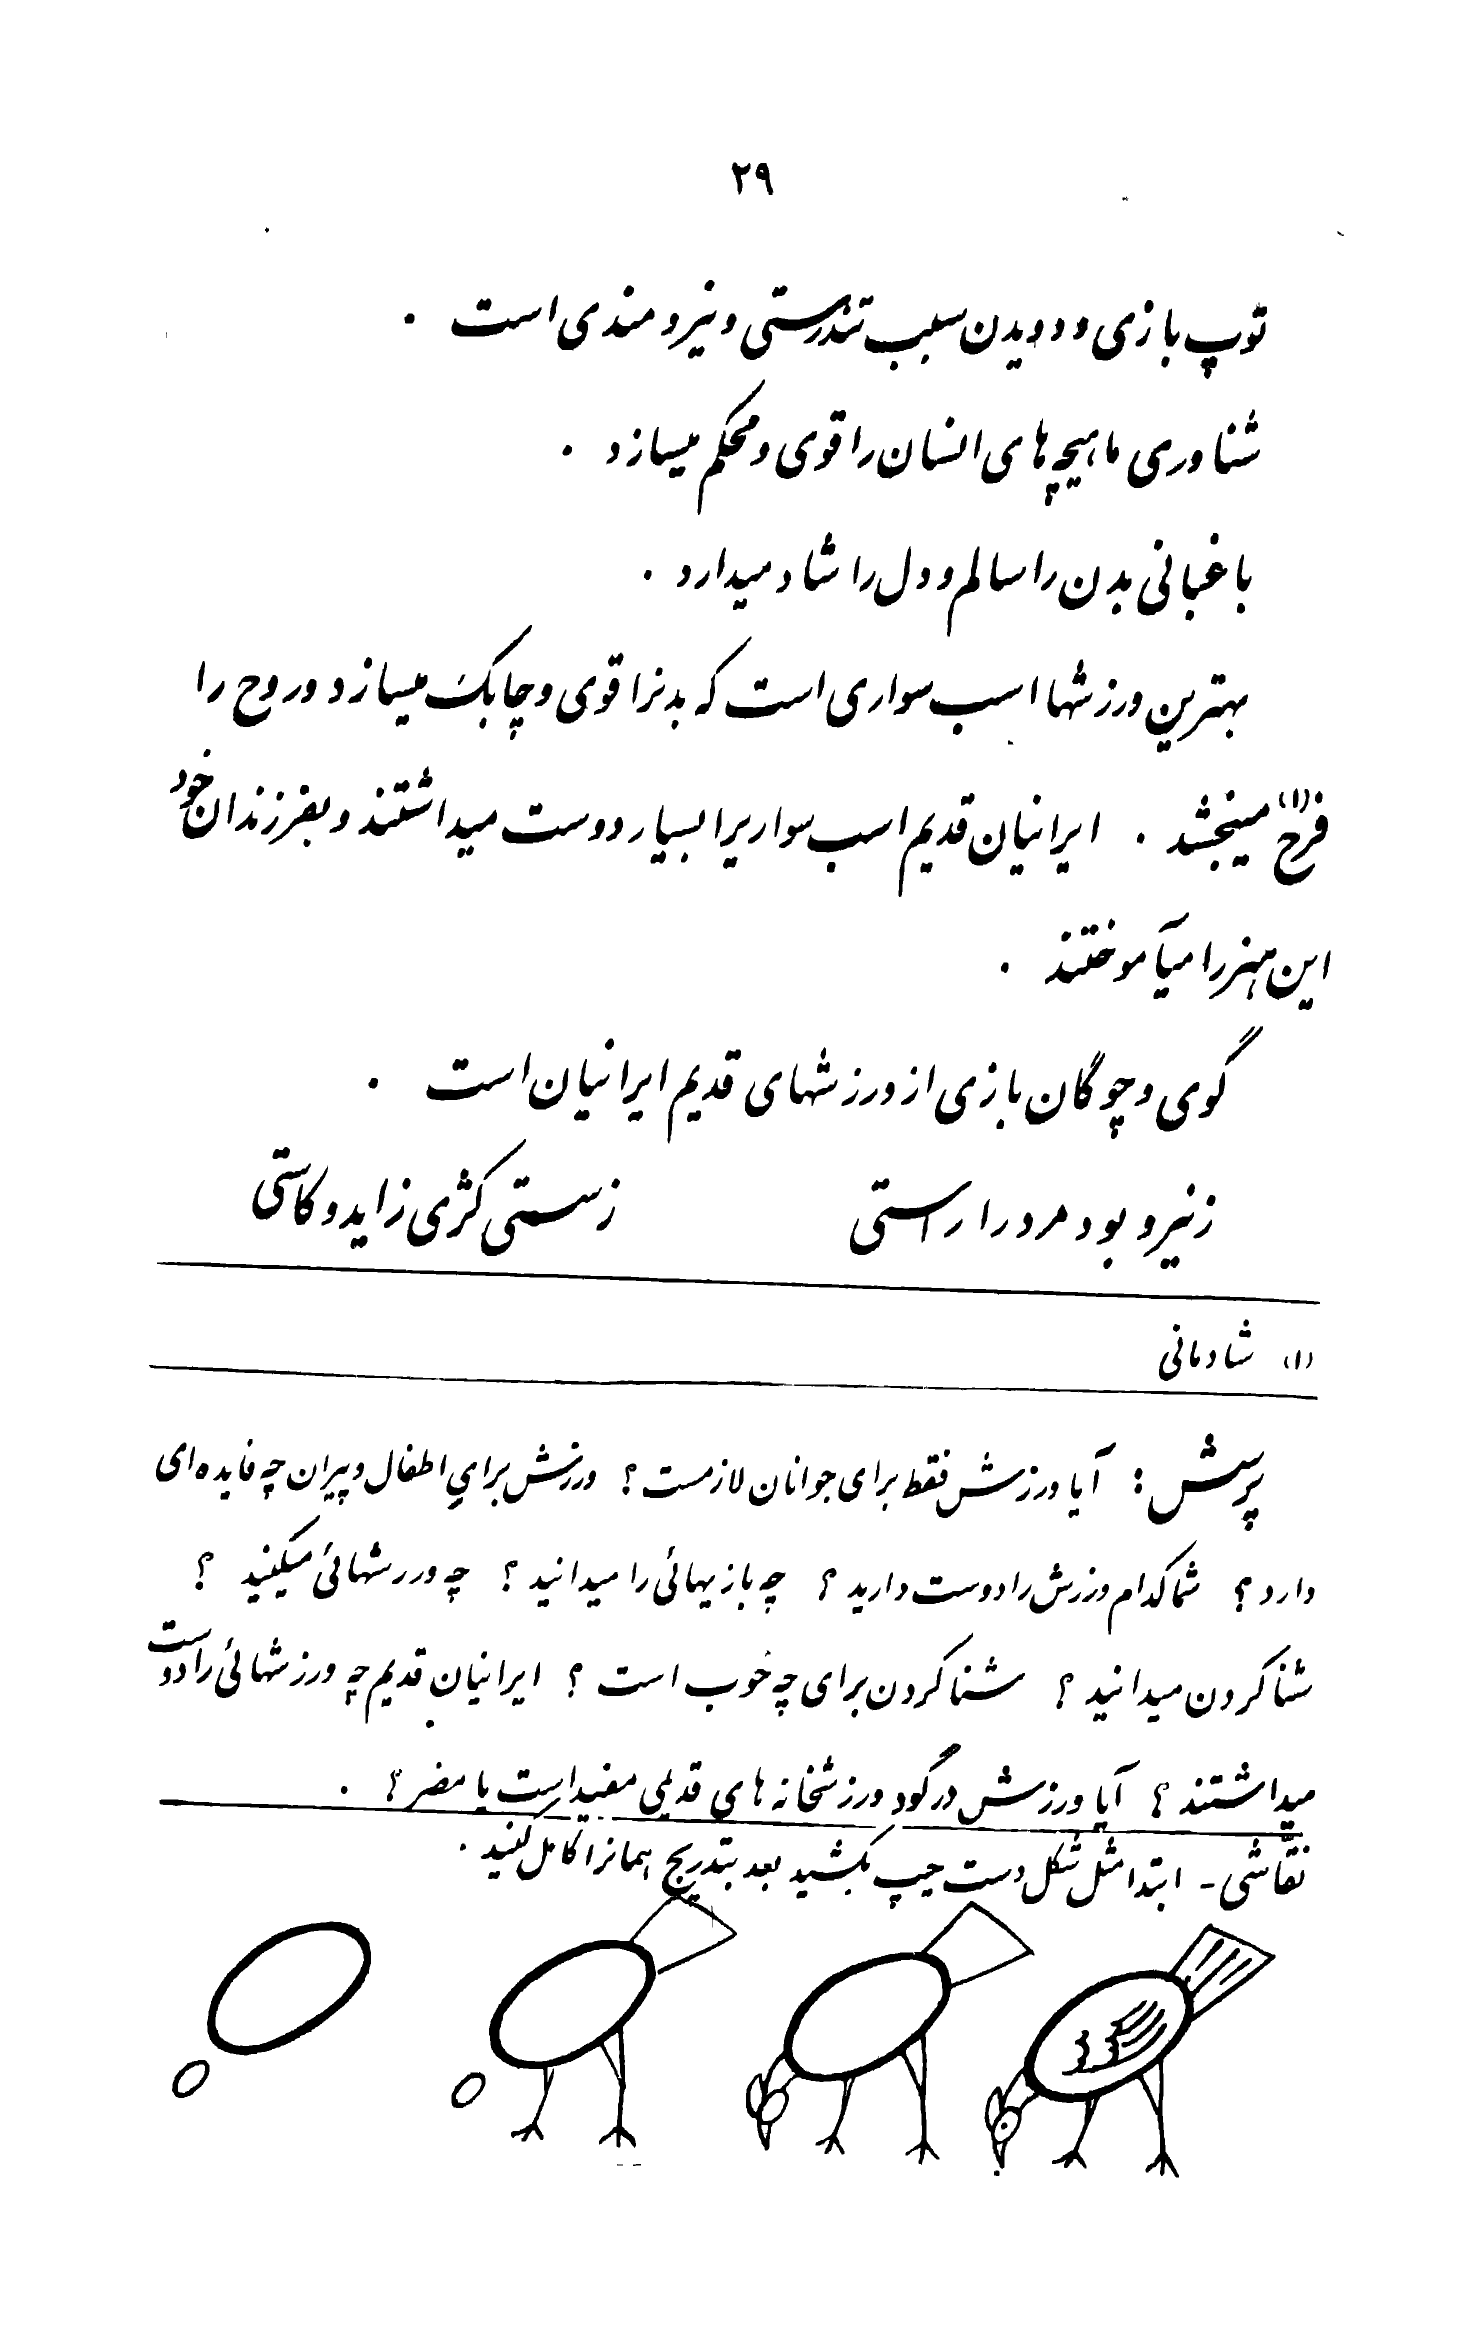 ۲۹
توپ بازی و دویدن سبب تندرستی و نیرومندی است .
شناوری ماهیچه‌های انسان را قوی و محکم میسازد .
باغبانی بدن را سالم و دل را شاد میدارد .
بهترین ورزشها اسب سواری است که بدنرا قوی و چابک میسازد و روح را
فرح (۱) میبخشد . ایرانیان قدیم اسب سواریرا بسیار دوست میداشتند و بفرزندان خود
این هنر را میآموختند .
گوی و چوگان بازی از ورزشهای قدیم ایرانیان است .
ز نیرو بود مرد را راستی ز سستی کژی زاید و کاستی
(۱) شادمانی
پرسش : آیا ورزش فقط برای جوانان لازمست ؟ ورزش برای اطفال و پیران چه فایده‌ای
دارد ؟ شما کدام ورزش را دوست دارید ؟ چه بازیهائی را میدانید ؟ چه ورزشهائی میکنید ؟
شنا کردن میدانید ؟ شنا کردن برای چه خوب است ؟ ایرانیان قدیم چه ورزشهائی را دوست
میداشتند ؟ آیا ورزش در گود ورزشخانه‌های قدیمی مفید است یا مضر ؟ .
نقّاشی - ابتدا مثل شکل دست چپ بکشید بعد بتدریج همانرا کامل کنید .